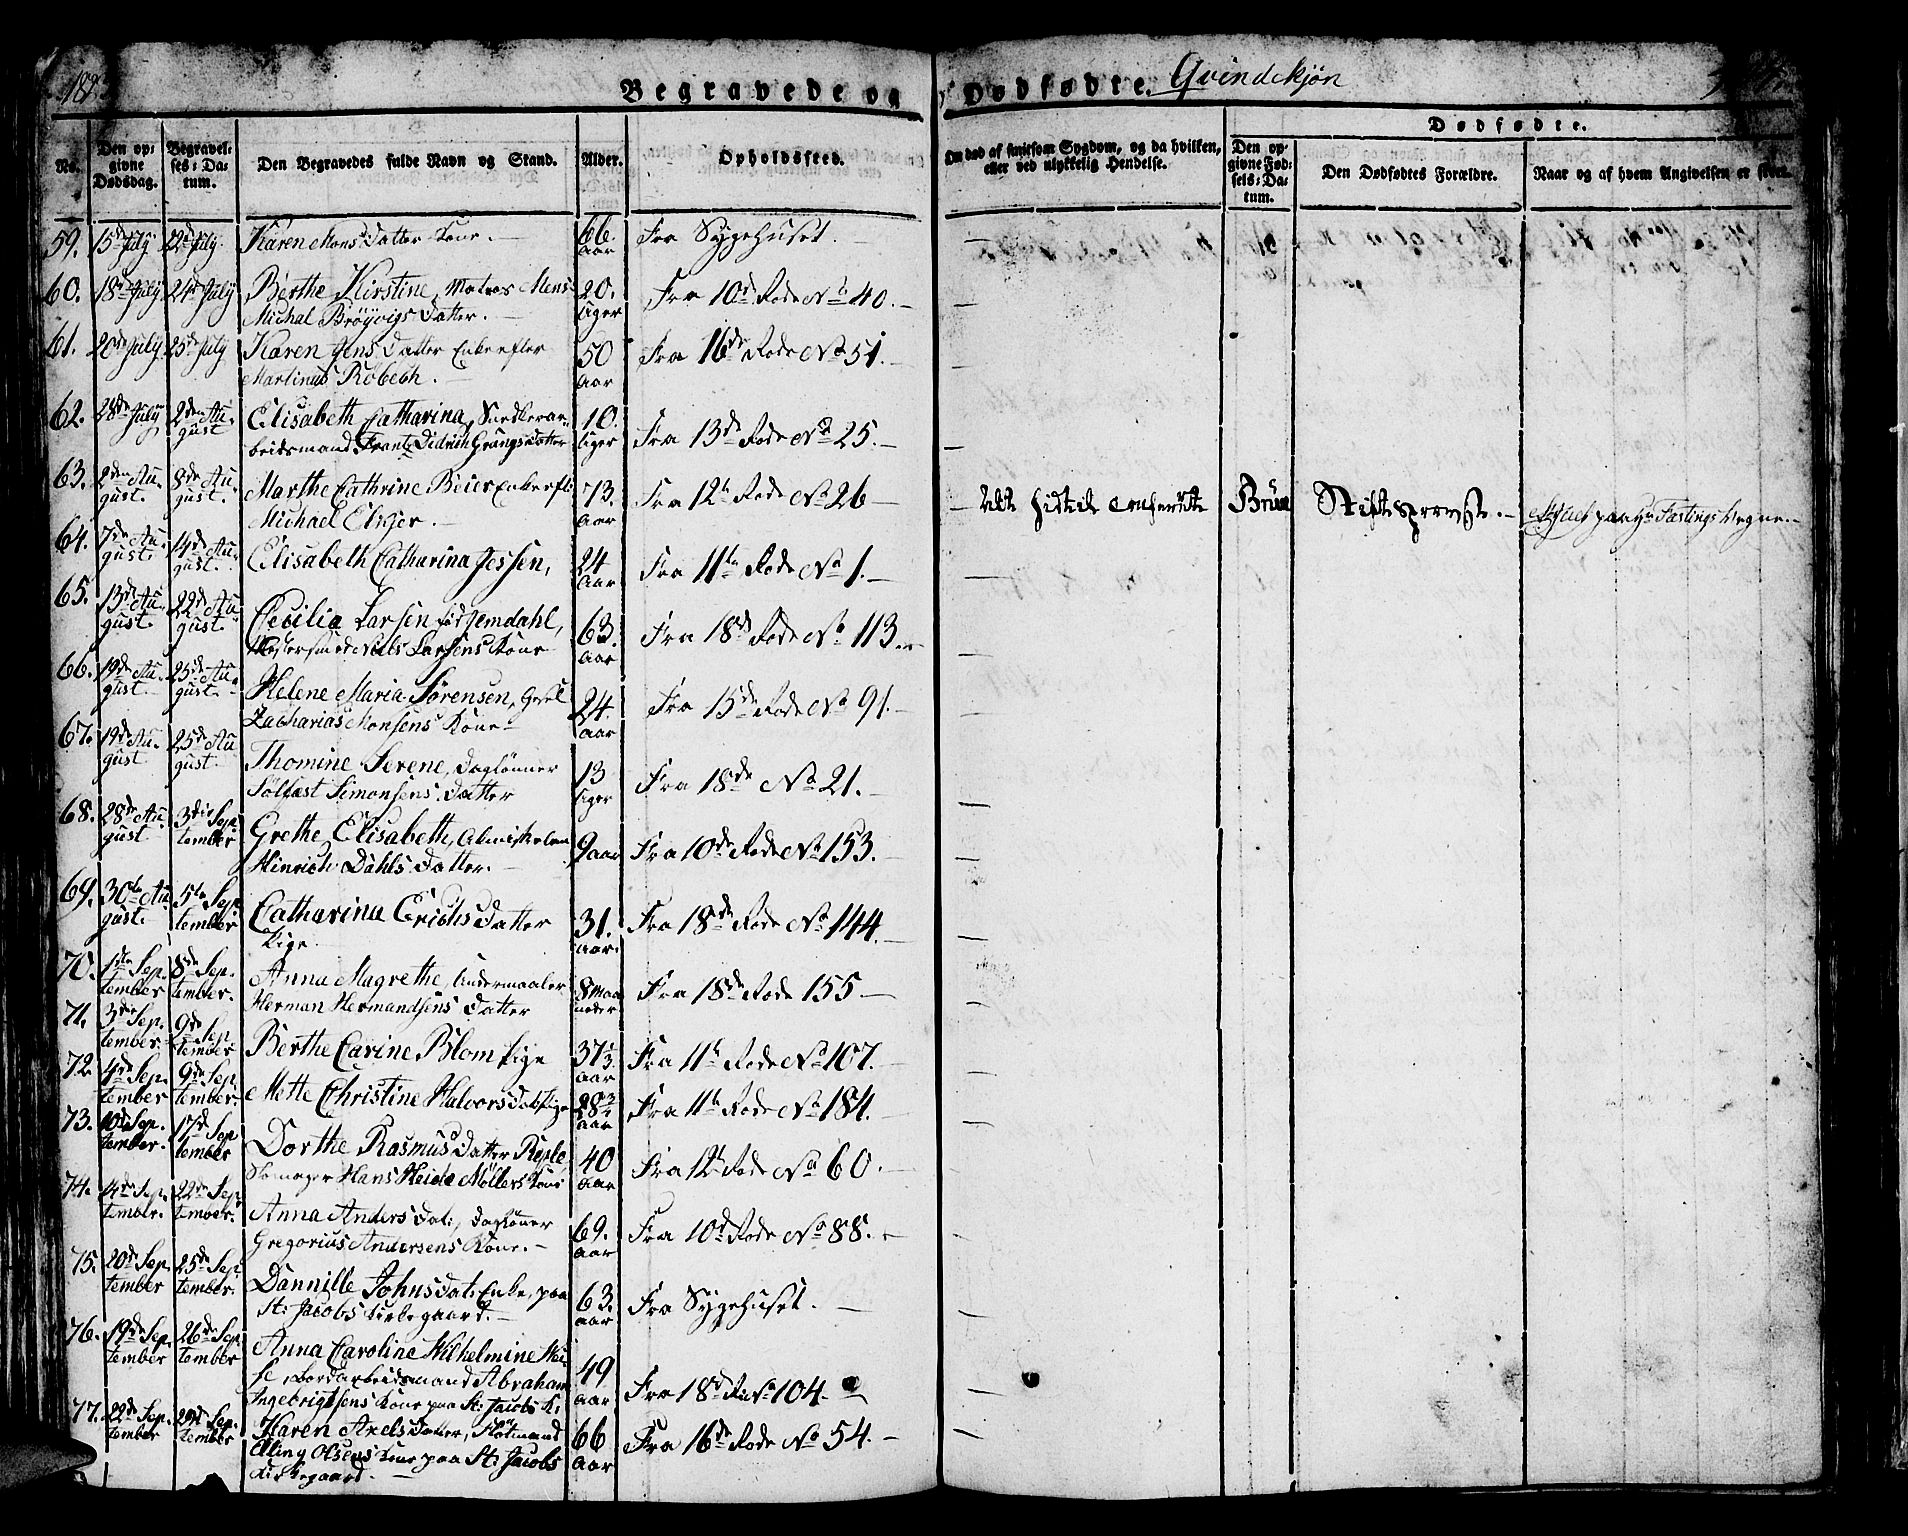 182
Begravede og Dødfødte. Qvindekjøn
No.
Den opgivne Dødsdag.
Begravelses-Datum.
Den Begravedes fulde Navn og Stand.
Alder.
Opholdssted.
Om død af smitsom Sygdom, og da hvilken, eller ved ulykkelig Hendelse.
Dødfødte.
Den opgivne Fødsels-Datum.
Den Dødfødtes Forældre.
Naar og af hvem Angivelsen er skeet.
59. 15de July 22de July. Karen Mons Datter Kone. — 66. Aar Fra Sygehuset. —
60. 18de July 24de July Berthe Kirstine, Matros Mens
Michal Brøyvigs Datter. — 20. Ager Fra 10de Rode No 40. —
61. 20de July 25de July Karen Jens Datter Enke efter
Martinus Robech. — 50 Aar Fra 16de Rode No 51. —
62. 28de July 2den August Elisabeth Catharina, Snedkerar-
beidsmand Frantz Didrich Grungs Datter 10. Ager Fra 13de Rode No 25. —
63. 2den August. 8de August. Marthe Cathrine Beier Enke eft:
Michael Elizer. — 73. Aar Fra 12te Rode No 26 —
64. 7de August. 14de August. Elisabeth Catharina Jessen, 24 Aar Fra 11te Rode No 1. —
65. 13de August. 22de August. Cecilia Larsen fød Jemdahl,
Mestersmed Nills Larsens Kone 63. Aar Fra 18de Rode No 113. —
66. 19de August. 25de August. Helene Maria Sørensen, Gesel
Zacharias Monsens Kone — 24. Aar Fra 15de Rode No 91. —
67. 19de August 25de August. Thomine Serene, Daglønner
Sølfast Simonsens Datter 13 Ager Fra 18de No 21. —
68. 28de August 3die September Grethe Elisabeth, Almiskelem
Hinrich Dahls Datter. — 9 aar Fra 10de Rode No 153. —
69. 30te August. 5te September Catharina Erichs Datter
Pige — 31. Aar. Fra 18de Rode No 144. —
70. 1ste September 8de September. Anna Magrethe, Undermaaler
Herman Hermandsens Datter 8 Maaneder Fra 18de Rode 155 —
71. 3die September. 9de September Berthe Carine Blom Pige 37 1/3 Aar Fra 11te Rode No 107. —
72. 4de September 9de September. Mette Christine Halvors Dat: Pige 28 3/4 Aar Fra 11te Rode No 184. —
73. 10de September. 17de September Dorthe Rasmus Datter Reple
Somager Hans Heide Møllers Kone 40 Aar Fra 12te Rode No 60. —
74. 14de September. 22de September. Anna Anders Dat:, Dagløner
Gregorius Andersens Kone. — 69. Aar Fra 10de Rode No 88. —
75. 20de September 25de September. Dannille Johns Dat: Enke, paa
St: Jacobs Kirkegaard. — 63. Aar Fra Sygehuset. —
76. 19de September 26de September Anna Carolina Wilhelmine Wei-
se, Bordarbeidsmand Abraham
Ingebrigtsens Kone paa St: Jacobs K: 49 Aar Fra 18de R: No 104. —
77. 22de September 29de September Karen Axels Datter, Flotmand
Eling Olsens Kone paa St: Jacobs
Kirkegaard. — 66 Aar Fra 16de Rode No 54. —
Stiftsprovst. —